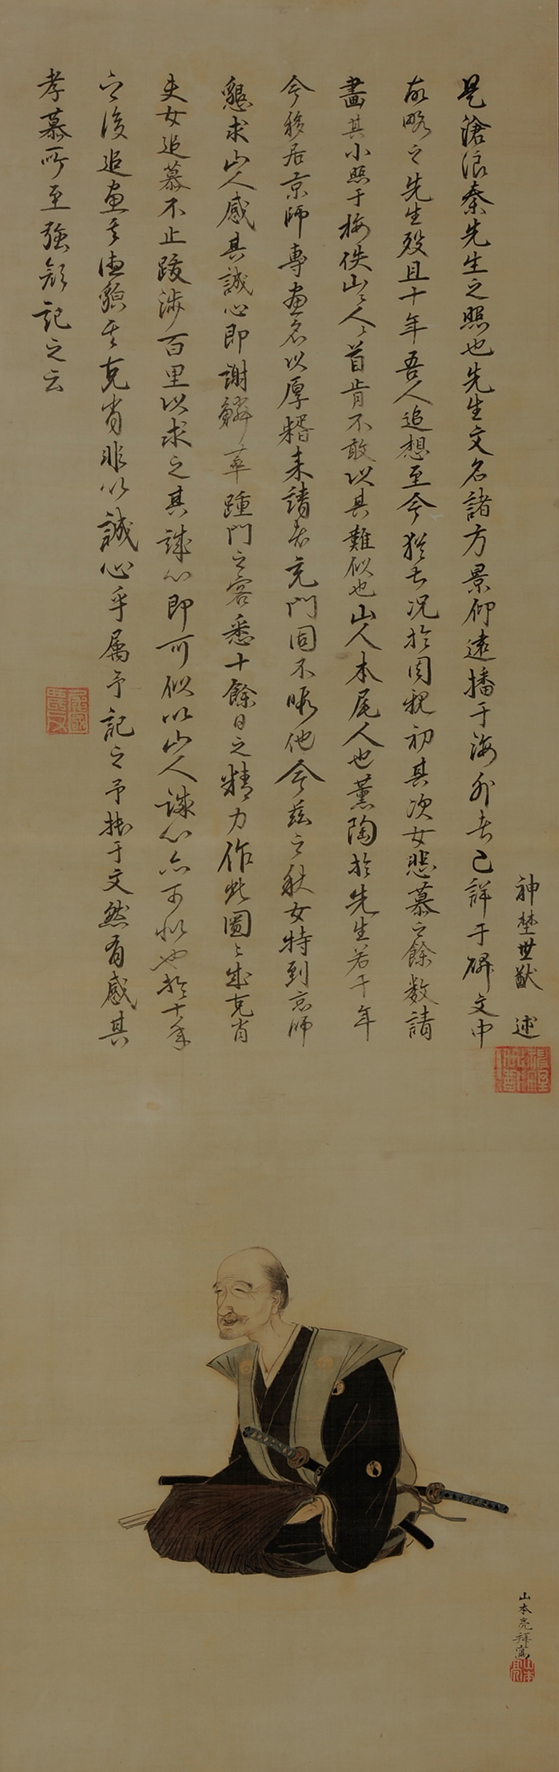 是滄浪秦先生之照也先生文名諸方景仰遠播于海外者已詳于碑文中
故略之先生歿且十年吾人追想至今猶古況於因親初其次女悲慕之餘数請
畫其小照于梅佚山人々首肯不敢以其難似也山人本尾人也薫陶於先生若干年
今移居京師專畫名以厚糈来請者充門固不暇他今茲之秋女特到京師
懇求山人感其誠心即謝鱗萃踵門之客悉十餘日之精力作此圖々成克肖
夫女追慕不止跋渉百里以求之其誠心即可似以山人誠心亦可似也於十年
之後追画其遺貌其克肖非以誠心乎属予記之予拙于文然有感其
孝慕所至強顔記之云
神埜世猷 述
山本亮拜寫